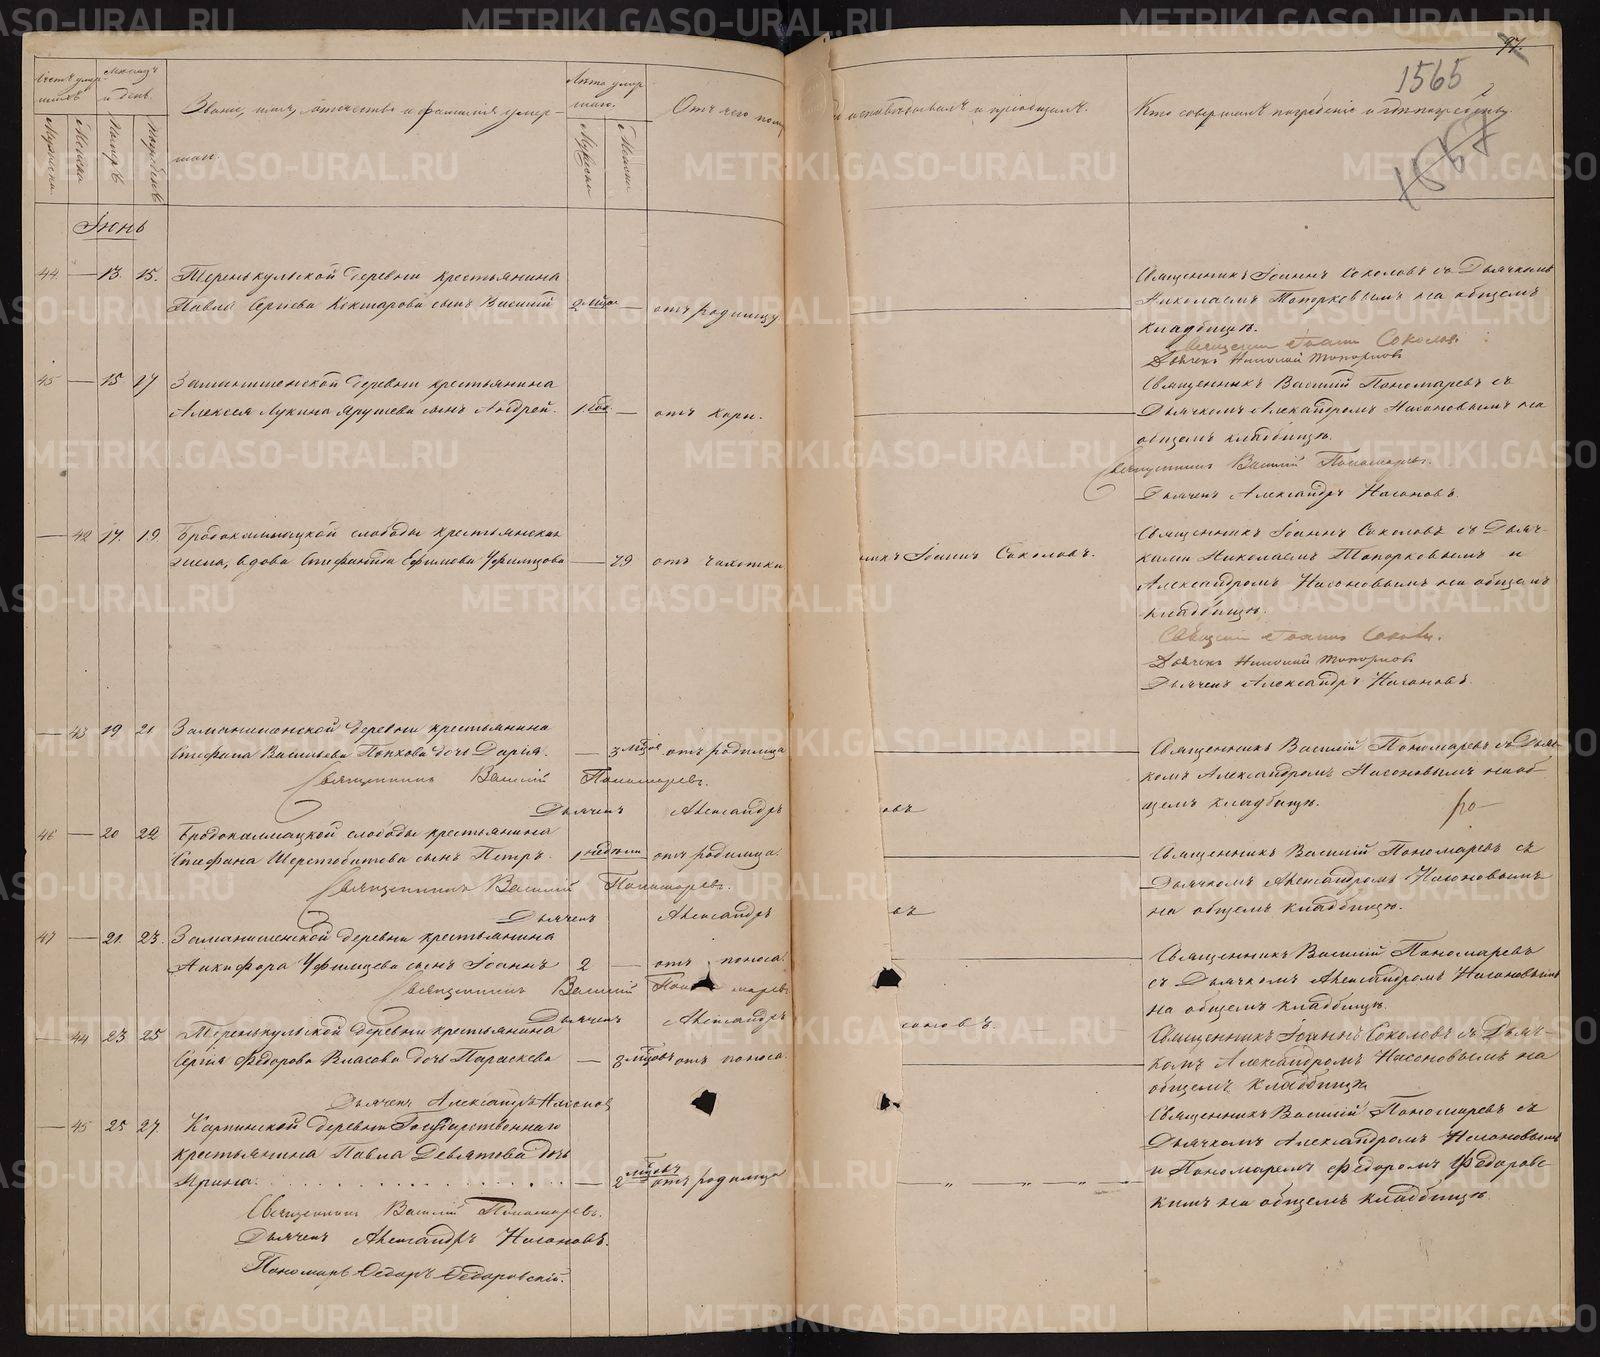 97.
1565
Счетъ умер-
шихъ
Мѣсяцъ
и день.
Званіе, имя, отчество и фамилія умер-
шаго.
Лѣта умер
шаго.
Отъ чего
исповѣдывалъ и пріобщалъ.
Кто совершалъ погребеніе и гдѣ погребены.
Мужска
Женска
Мужска
Женска
Іюнь
44. — 13. 15. Теренькульской деревни крестьянина
Павла Сергѣева сынъ Василій 2 мѣся — отъ родимцу
Священникъ Іоаннъ Соколовъ съ Дьячкомъ
Николаемъ Топорковымъ на общемъ
кладбищѣ.
Священни Іоанн Соколов.
Дьячекъ Николай Топорковъ
45 — 15 17 Заманиленской деревни крестьянина
Алексея Лукина сынъ Андрей. 1 год — отъ кори.
Священникъ Василій Пономаревъ съ
Дьячкомъ Александромъ Насоновымъ на
общемъ кладбищѣ.
Священникъ Василій Пономаревъ.
Дьячекъ Александръ Насоновъ.
— 42 17. 19. Бродокалмацкой слободы крестьянская
вдова Ефимова Уфимцова — 79 отъ чахотки
Іоаннъ Соколовъ.
Священникъ Іоаннъ Соколовъ съ Дьяч-
ками Николаемъ Топорковымъ и
Александромъ Насоновымъ на общемъ
кладбищѣ.
Дьячекъ Николай Топорковъ
Дьячекъ Александръ Насоновъ.
— 43 19 21 Заманиленской деревни крестьянина
Стефана Васильева Попкова дочь Дарія. — 3 мѣсяц отъ родимца
Священникъ Василій Пономаревъ.
Дьячекъ Александръ
Священникъ Василій Пономаревъ съ Дьяч
комъ Александромъ Насоновымъ на об
щемъ кладбищѣ.
46 — 20 22 Бродокалмацкой слободы крестьянина
Стефана Шерстобитова сынъ Петръ. 1 недѣли отъ родимца.
Священникъ Василій Пономаревъ.
Дьячекъ Александръ
Священникъ Василій Пономаревъ съ
Дьячкомъ Александромъ Насоновымъ
на общемъ кладбищѣ.
47 — 21. 23. Заманиленской деревни крестьянина
Никифора Уфимцева сынъ Іоаннъ 2 — отъ поноса.
Священникъ Василій Пономаревъ
Дьячекъ Александръ
соновъ.
Священникъ Василій Пономаревъ
съ Дьячкомъ Александромъ Насоновымъ
на общемъ кладбищѣ.
— 44 23 25 Теренькульской деревни крестьянина
Сергія Федорова Власова дочь Параскева — 3 мѣсяцъ отъ поноса.
Дьячекъ Александръ Насонов
Священникъ Іоаннъ Соколовъ съ Дьяч-
комъ Александромъ Насоновымъ на
общемъ кладбищѣ
— 45 25 27. Карпинской деревни Государственнаго
крестьянина Павла Девятова дочь
Ирина. — 2 мѣсяцъ отъ родимца
Священникъ Василій Пономаревъ.
Дьячекъ Александръ Насоновъ.
Пономарь Федоръ Федоровскій.
Священникъ Василій Пономаревъ съ
Дьячкомъ Александромъ Насоновымъ
и Пономаремъ Федоромъ Федоровс-
кимъ на общемъ кладбищѣ.
METRIKI.GASO-URAL.RU